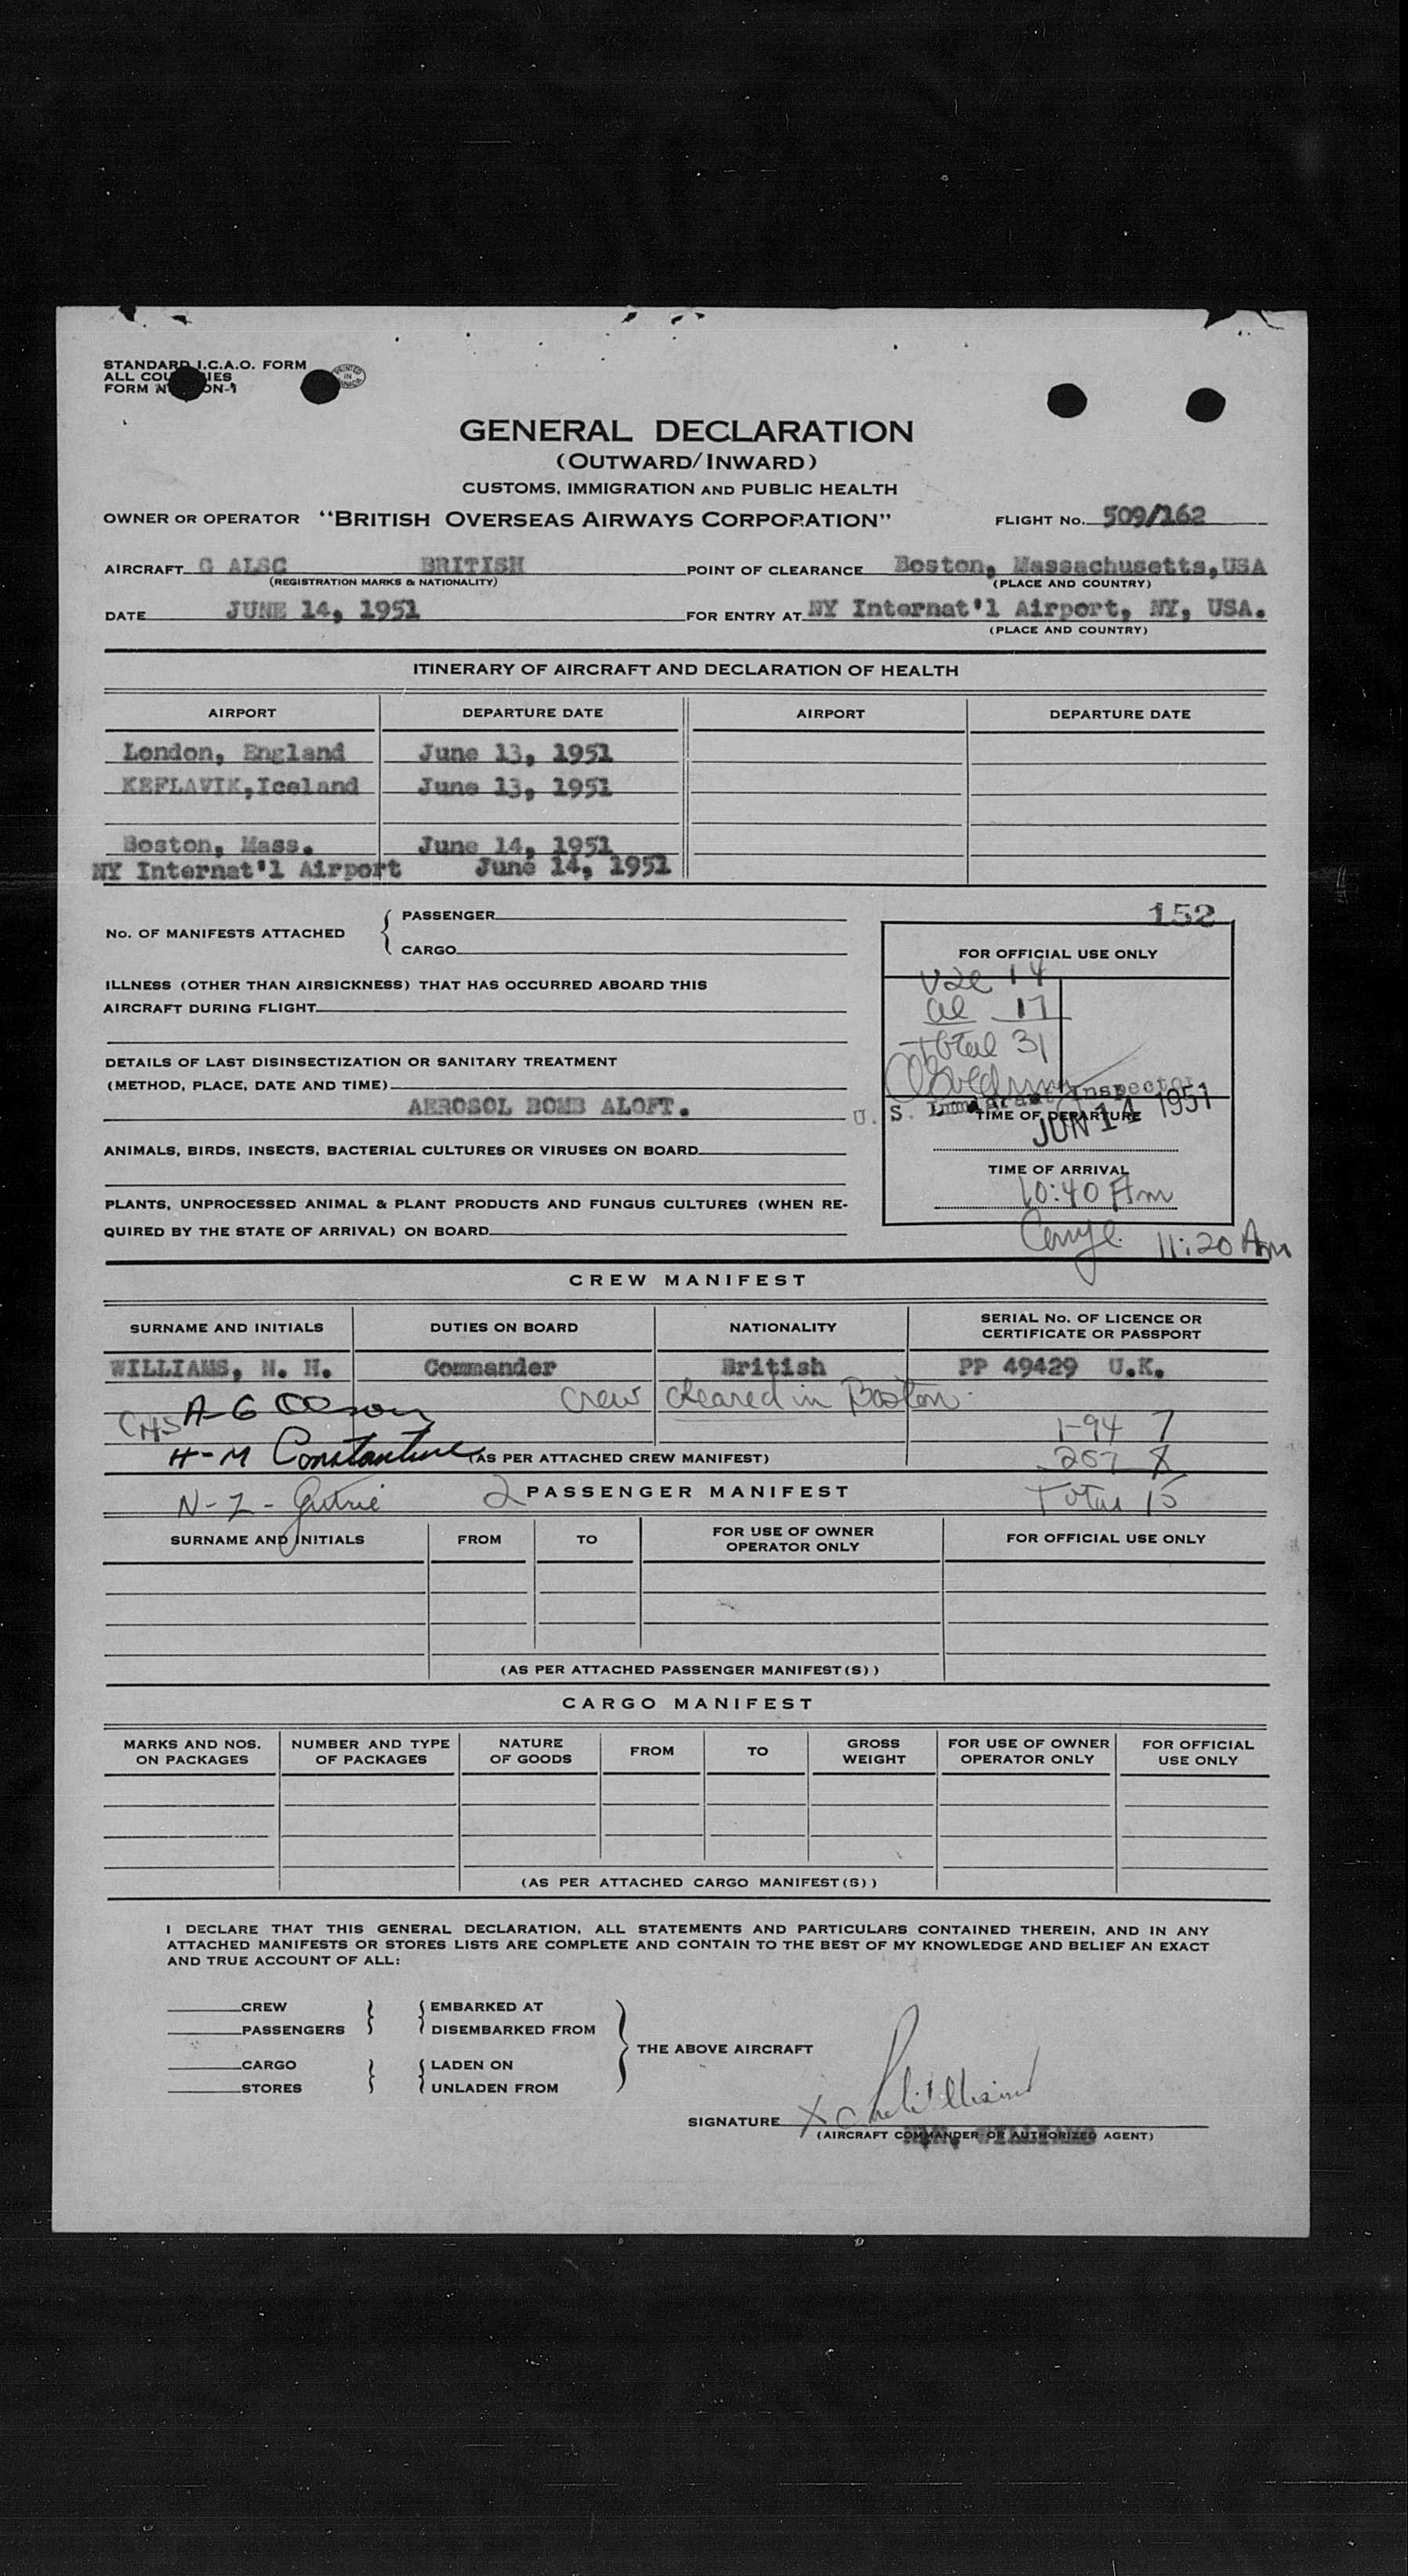 STANDARD I.C.A.O. FORM
ALL COUNTRIES
FORM ON-1
PRINTED IN CANADA
GENERAL DECLARATION
(OUTWARD/INWARD)
CUSTOMS, IMMIGRATION AND PUBLIC HEALTH
OWNER OR OPERATOR "BRITISH OVERSEAS AIRWAYS CORPORATION" FLIGHT No. 509/162
AIRCRAFT G ALSC BRITISH POINT OF CLEARANCE Boston, Massachusetts, USA
(REGISTRATION MARKS & NATIONALITY) (PLACE AND COUNTRY)
DATE JUNE 14, 1951 FOR ENTRY AT NY Internat'l Airport, NY, USA.
(PLACE AND COUNTRY)
ITINERARY OF AIRCRAFT AND DECLARATION OF HEALTH
AIRPORT DEPARTURE DATE AIRPORT DEPARTURE DATE
London, England June 13, 1951
KEFLAVIK, Iceland June 13, 1951
Boston, Mass. June 14, 1951
NY Internat'l Airport June 14, 1951
152
No. OF MANIFESTS ATTACHED { PASSENGER
CARGO
FOR OFFICIAL USE ONLY
USC 14
al 17
Total 31
U. S. Immigrant Inspector
JUN 14 1951
TIME OF DEPARTURE
TIME OF ARRIVAL
10:40 Am
11:20 Am
ILLNESS (OTHER THAN AIRSICKNESS) THAT HAS OCCURRED ABOARD THIS
AIRCRAFT DURING FLIGHT
DETAILS OF LAST DISINSECTIZATION OR SANITARY TREATMENT
(METHOD, PLACE, DATE AND TIME)
AEROSOL BOMB ALOFT.
ANIMALS, BIRDS, INSECTS, BACTERIAL CULTURES OR VIRUSES ON BOARD
PLANTS, UNPROCESSED ANIMAL & PLANT PRODUCTS AND FUNGUS CULTURES (WHEN RE-
QUIRED BY THE STATE OF ARRIVAL) ON BOARD
CREW MANIFEST
SURNAME AND INITIALS DUTIES ON BOARD NATIONALITY SERIAL No. OF LICENCE OR
CERTIFICATE OR PASSPORT
WILLIAMS, N. H. Commander British PP 49429 U.K.
CHS A-G Olson Crew cleared in Boston
1-94 7
H-M Constantine (AS PER ATTACHED CREW MANIFEST) 257 8
N-Z - Gutrie 2 PASSENGER MANIFEST Total 15
SURNAME AND INITIALS FROM TO FOR USE OF OWNER
OPERATOR ONLY FOR OFFICIAL USE ONLY
(AS PER ATTACHED PASSENGER MANIFEST(S))
CARGO MANIFEST
MARKS AND NOS.
ON PACKAGES NUMBER AND TYPE
OF PACKAGES NATURE
OF GOODS FROM TO GROSS
WEIGHT FOR USE OF OWNER
OPERATOR ONLY FOR OFFICIAL
USE ONLY
(AS PER ATTACHED CARGO MANIFEST(S))
I DECLARE THAT THIS GENERAL DECLARATION, ALL STATEMENTS AND PARTICULARS CONTAINED THEREIN, AND IN ANY
ATTACHED MANIFESTS OR STORES LISTS ARE COMPLETE AND CONTAIN TO THE BEST OF MY KNOWLEDGE AND BELIEF AN EXACT
AND TRUE ACCOUNT OF ALL:
CREW } { EMBARKED AT
PASSENGERS DISEMBARKED FROM
} THE ABOVE AIRCRAFT
CARGO } { LADEN ON
STORES UNLADEN FROM
SIGNATURE X
(AIRCRAFT COMMANDER OR AUTHORIZED AGENT)
WILLIAMS